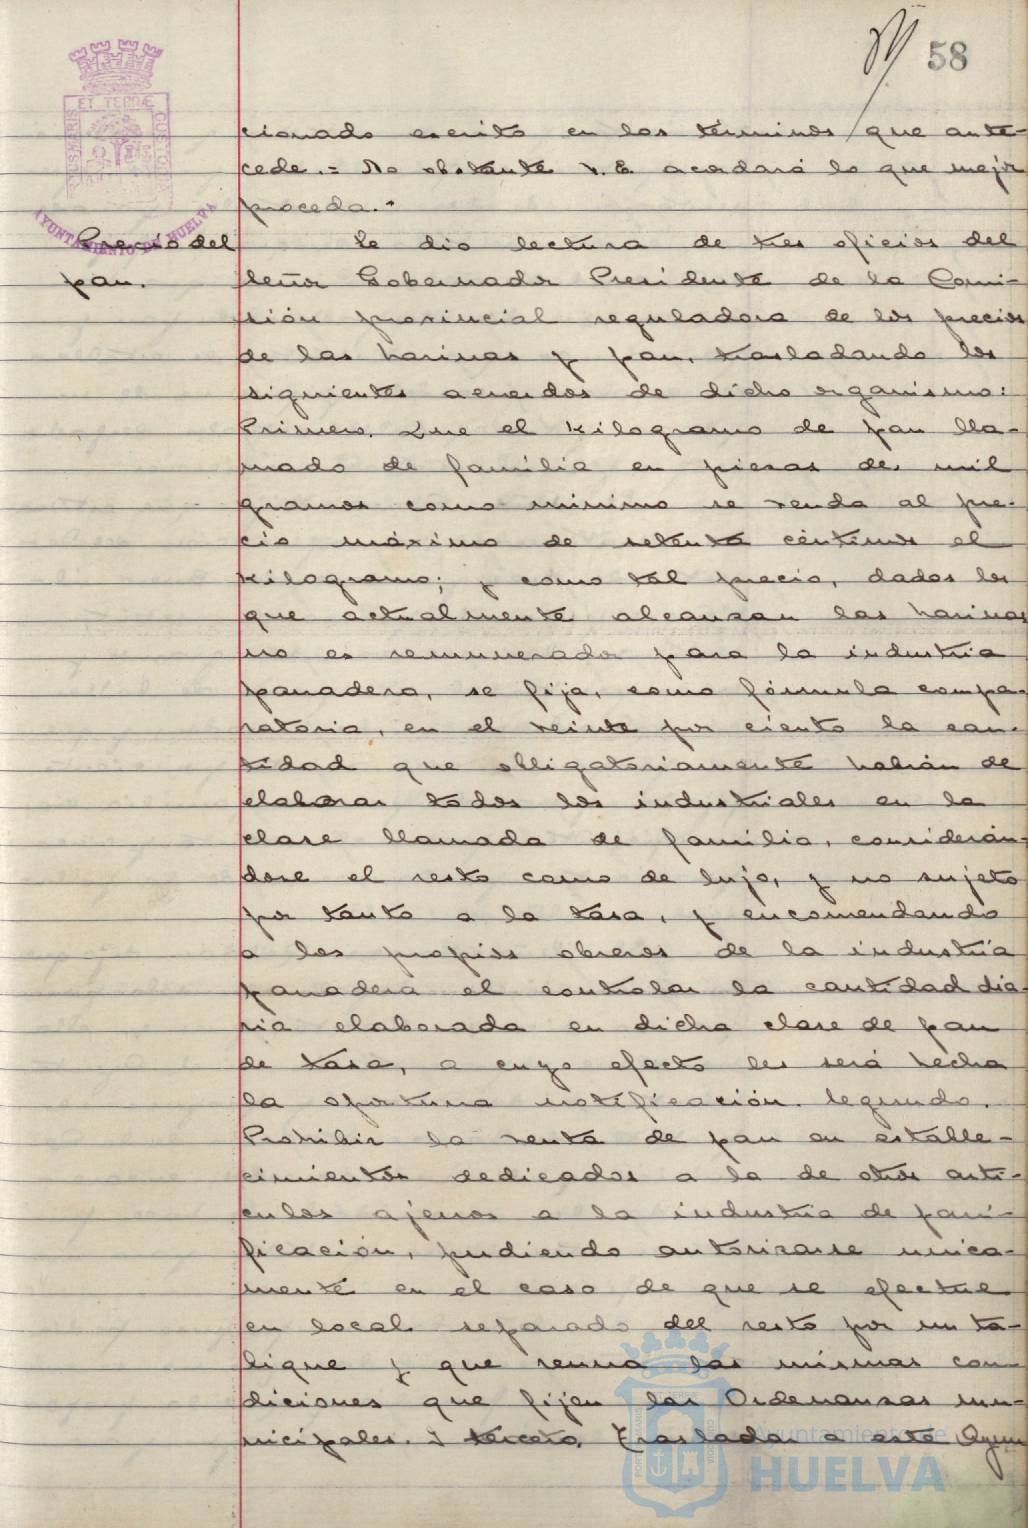 58
ET TERRÆ
AYUNTAMIENTO DE HUELVA
cionado escrito en los términos que ante-
cede.= No obstante V. E. acordará lo que mejor
proceda.-
Precio del
pan.
Se dio lectura de tres oficios del
Señor Gobernador Presidente de la Comi-
sión provincial reguladora de los precios
de las harinas y pan, trasladando los
siguientes acuerdos de dicho organismo:
Primero. Que el kilogramo de pan lla-
mado de familia en piezas de mil
gramos como mínimo se venda al pre-
cio máximo de setenta céntimos el
kilogramo; y como tal precio, dados los
que actualmente alcanzan las harinas
no es remunerador para la industria
panadera, se fija, como fórmula compen-
satoria, en el veinte por ciento la can-
tidad que obligatoriamente habrán de
elaborar todos los industriales en la
clase llamada de familia, considerán-
dose el resto como de lujo, y no sujeto
por tanto a la tasa, y encomendando
a los propios obreros de la industria
panadera el controlar la cantidad dia-
ria elaborada en dicha clase de pan
de tasa, a cuyo efecto les será hecha
la oportuna notificación. Segundo.
Prohibir la venta de pan en estable-
cimientos dedicados a la de otros artí-
culos ajenos a la industria de pani-
ficación, pudiendo autorizarse unica-
mente en el caso de que se efectue
en local separado del resto por un ta-
bique y que reuna las mismas con-
diciones que fijen las Ordenanzas mu-
nicipales. Y tercero. Trasladar a este Ayun
Ayuntamiento de
HUELVA